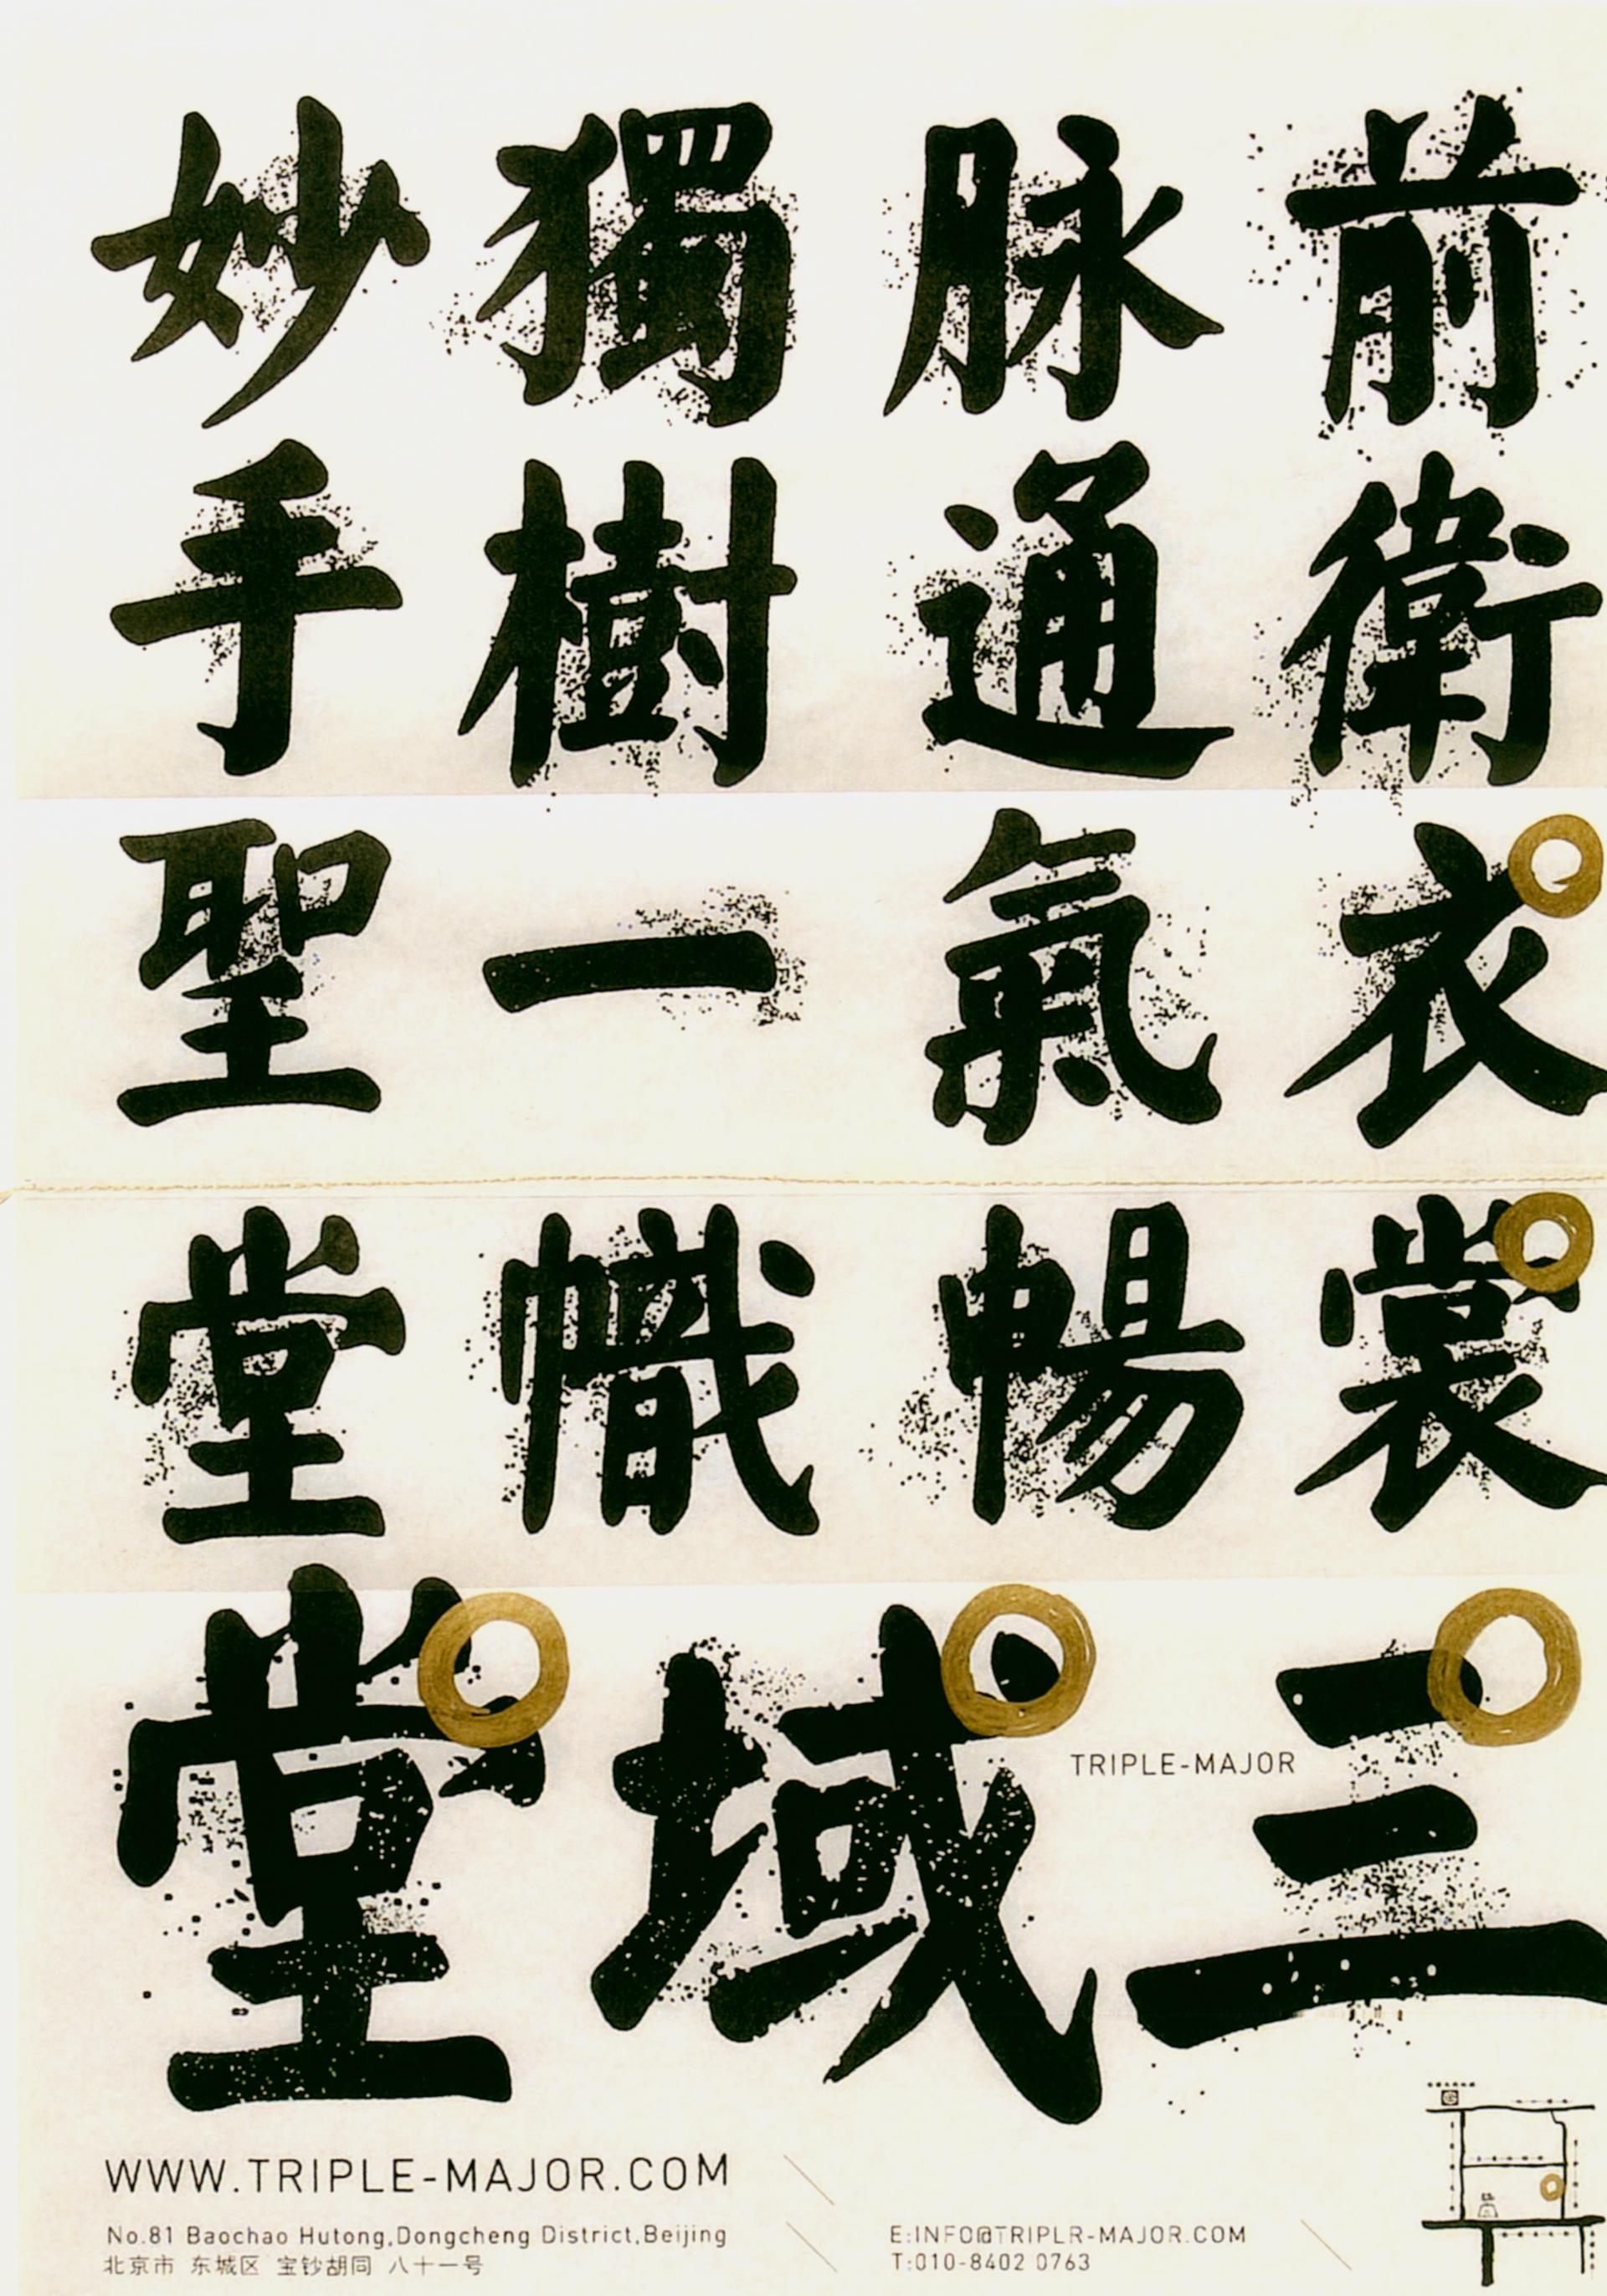 前衛衣裳
脉通氣暢
獨樹一幟
妙手聖堂
三域堂
TRIPLE-MAJOR
WWW.TRIPLE-MAJOR.COM
No.81 Baochao Hutong,Dongcheng District,Beijing
北京市 东城区 宝钞胡同 八十一号
E:INFO@TRIPLR-MAJOR.COM
T:010-8402 0763